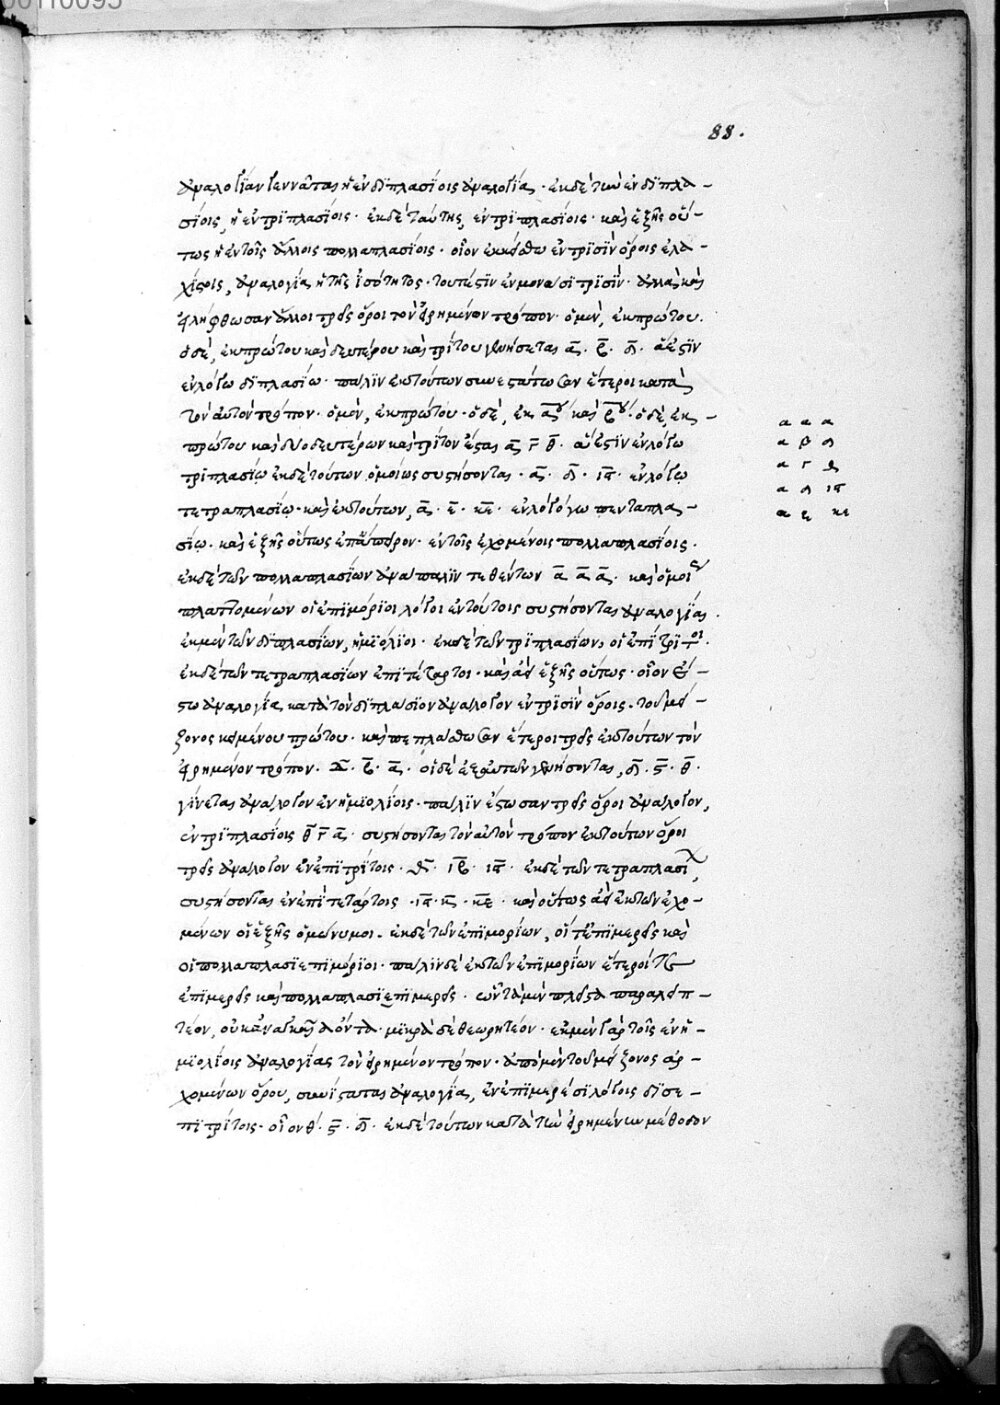 88.
ἀναλογίαν γεννᾶται ἡ ἐν διπλασίοις ἀναλογία· ἐκ δὲ τῶν ἐν διπλα-
σίοις, ἡ ἐν τριπλασίοις· ἐκ δὲ ταύτης, ἐν τριπλασίοις· καὶ ἑξῆς οὕ-
τως ἡ ἐν τοῖς ἄλλοις πολλαπλασίοις· οἷον ἐκκείσθω ἐν τρισὶν ὅροις ἐλα-
χίστοις, ἀναλογία ἡ τῆς ἰσότητος· τουτέστιν ἐν μονάσι τρισίν· ἀλλὰ καὶ
εἰλήφθωσαν ἄλλοι τρεῖς ὅροι τὸν εἰρημένον τρόπον· ὁ μὲν, ἐκ πρώτου.
ὁ δὲ, ἐκ πρώτου καὶ δευτέρου καὶ τρίτου γενήσεται α. β. δ. ἅ ἐστιν
ἐν λόγῳ διπλασίῳ· πάλιν ἐκ τούτων συνεστάτωσαν ἕτεροι κατὰ
τὸν αὐτὸν τρόπον· ὁ μὲν, ἐκ πρώτου· ὁ δὲ, ἐκ αου καὶ βου· ὁ δὲ, ἐκ
πρώτου καὶ δύο δευτέρων καὶ τρίτου ἔσται α γ θ. αἵ ἐστιν ἐν λόγῳ
τριπλασίῳ ἐκ δὲ τούτων ὁμοίως συστήσονται· α· δ· ις· ἐν λόγῳ
τετραπλασίῳ· καὶ ἐκ τούτων, α· ε· κε· ἐν λόγῳ πενταπλα-
σίῳ· καὶ ἑξῆς οὕτως ἐπ' ἄπειρον· ἐν τοῖς ἐχομένοις πολλαπλασίοις.
ἐκ δὲ τῶν πολλαπλασίων ἀνάπαλιν τεθέντων α α α· καὶ ὁμοί
πλαττομένων οἱ ἐπιμόριοι λόγοι ἐν τούτοις συστήσονται ἀναλογίαι.
ἐκ μὲν τῶν διπλασίων, ἡμιόλιοι· ἐκ δὲ τῶν τριπλασίων, οἱ ἐπίτριτοι.
ἐκ δὲ τῶν τετραπλασίων ἐπιτέταρτοι· καὶ ἀεὶ ἑξῆς οὕτως· οἷον ἔ-
στω ἀναλογία κατὰ τὸν διπλάσιον ἀνάλογον ἐν τρισὶν ὅροις· τοῦ μεί-
ζονος κειμένου πρώτου· καὶ πεπλάσθωσαν ἕτεροι τρεῖς ἐκ τούτων τὸν
εἰρημένον τρόπον· δ· β· α· οἱ δὲ ἐξ αὐτῶν γενήσονται, δ· ς· θ·
γίνεται ἀνάλογον ἐν ἡμιολίοις· πάλιν ἔστωσαν τρεῖς ὅροι ἀνάλογον,
ἐν τριπλασίοις θ γ α· συστήσονται τὸν αὐτὸν τρόπον ἐκ τούτων ὅροι
τρεῖς ἀνάλογον ἐν ἐπιτρίτοις· θ· ιβ· ις· ἐκ δὲ τῶν τετραπλασί
συστήσονται ἐν ἐπιτετάρτοις· ις· κ· κε· καὶ οὕτως ἀεὶ ἐκ τῶν ἐχο-
μένων οἱ ἑξῆς ὁμώνυμοι· ἐκ δὲ τῶν ἐπιμορίων, οἵ τ' ἐπιμερεῖς καὶ
οἱ πολλαπλασιεπιμόριοι· πάλιν δὲ ἐκ τῶν ἐπιμορίων ἕτεροί τε
ἐπιμερεῖς καὶ πολλαπλασιεπιμερεῖς· ὧν τὰ μὲν πλεῖστα παραλειπ-
τέον, οὐκ ἀναγκαῖα ὄντα· μικρὰ δὲ θεωρητέον· ἐκ μὲν γὰρ τοῖς ἐν ἡ-
μιολίοις ἀναλογίας τὸν εἰρημένον τρόπον· ἀπὸ μὲν τοῦ μείζονος ἀρ-
χομένων ὅρου, συνίσταται ἀναλογία, ἐν ἐπιμερέσι λόγοις δισε-
πιτρίτοις· οἷον θ· ς· δ· ἐκ δὲ τούτων κατὰ τὴν εἰρημένην μέθοδον
α α α
α β δ
α γ θ
α δ ις
α ε κε